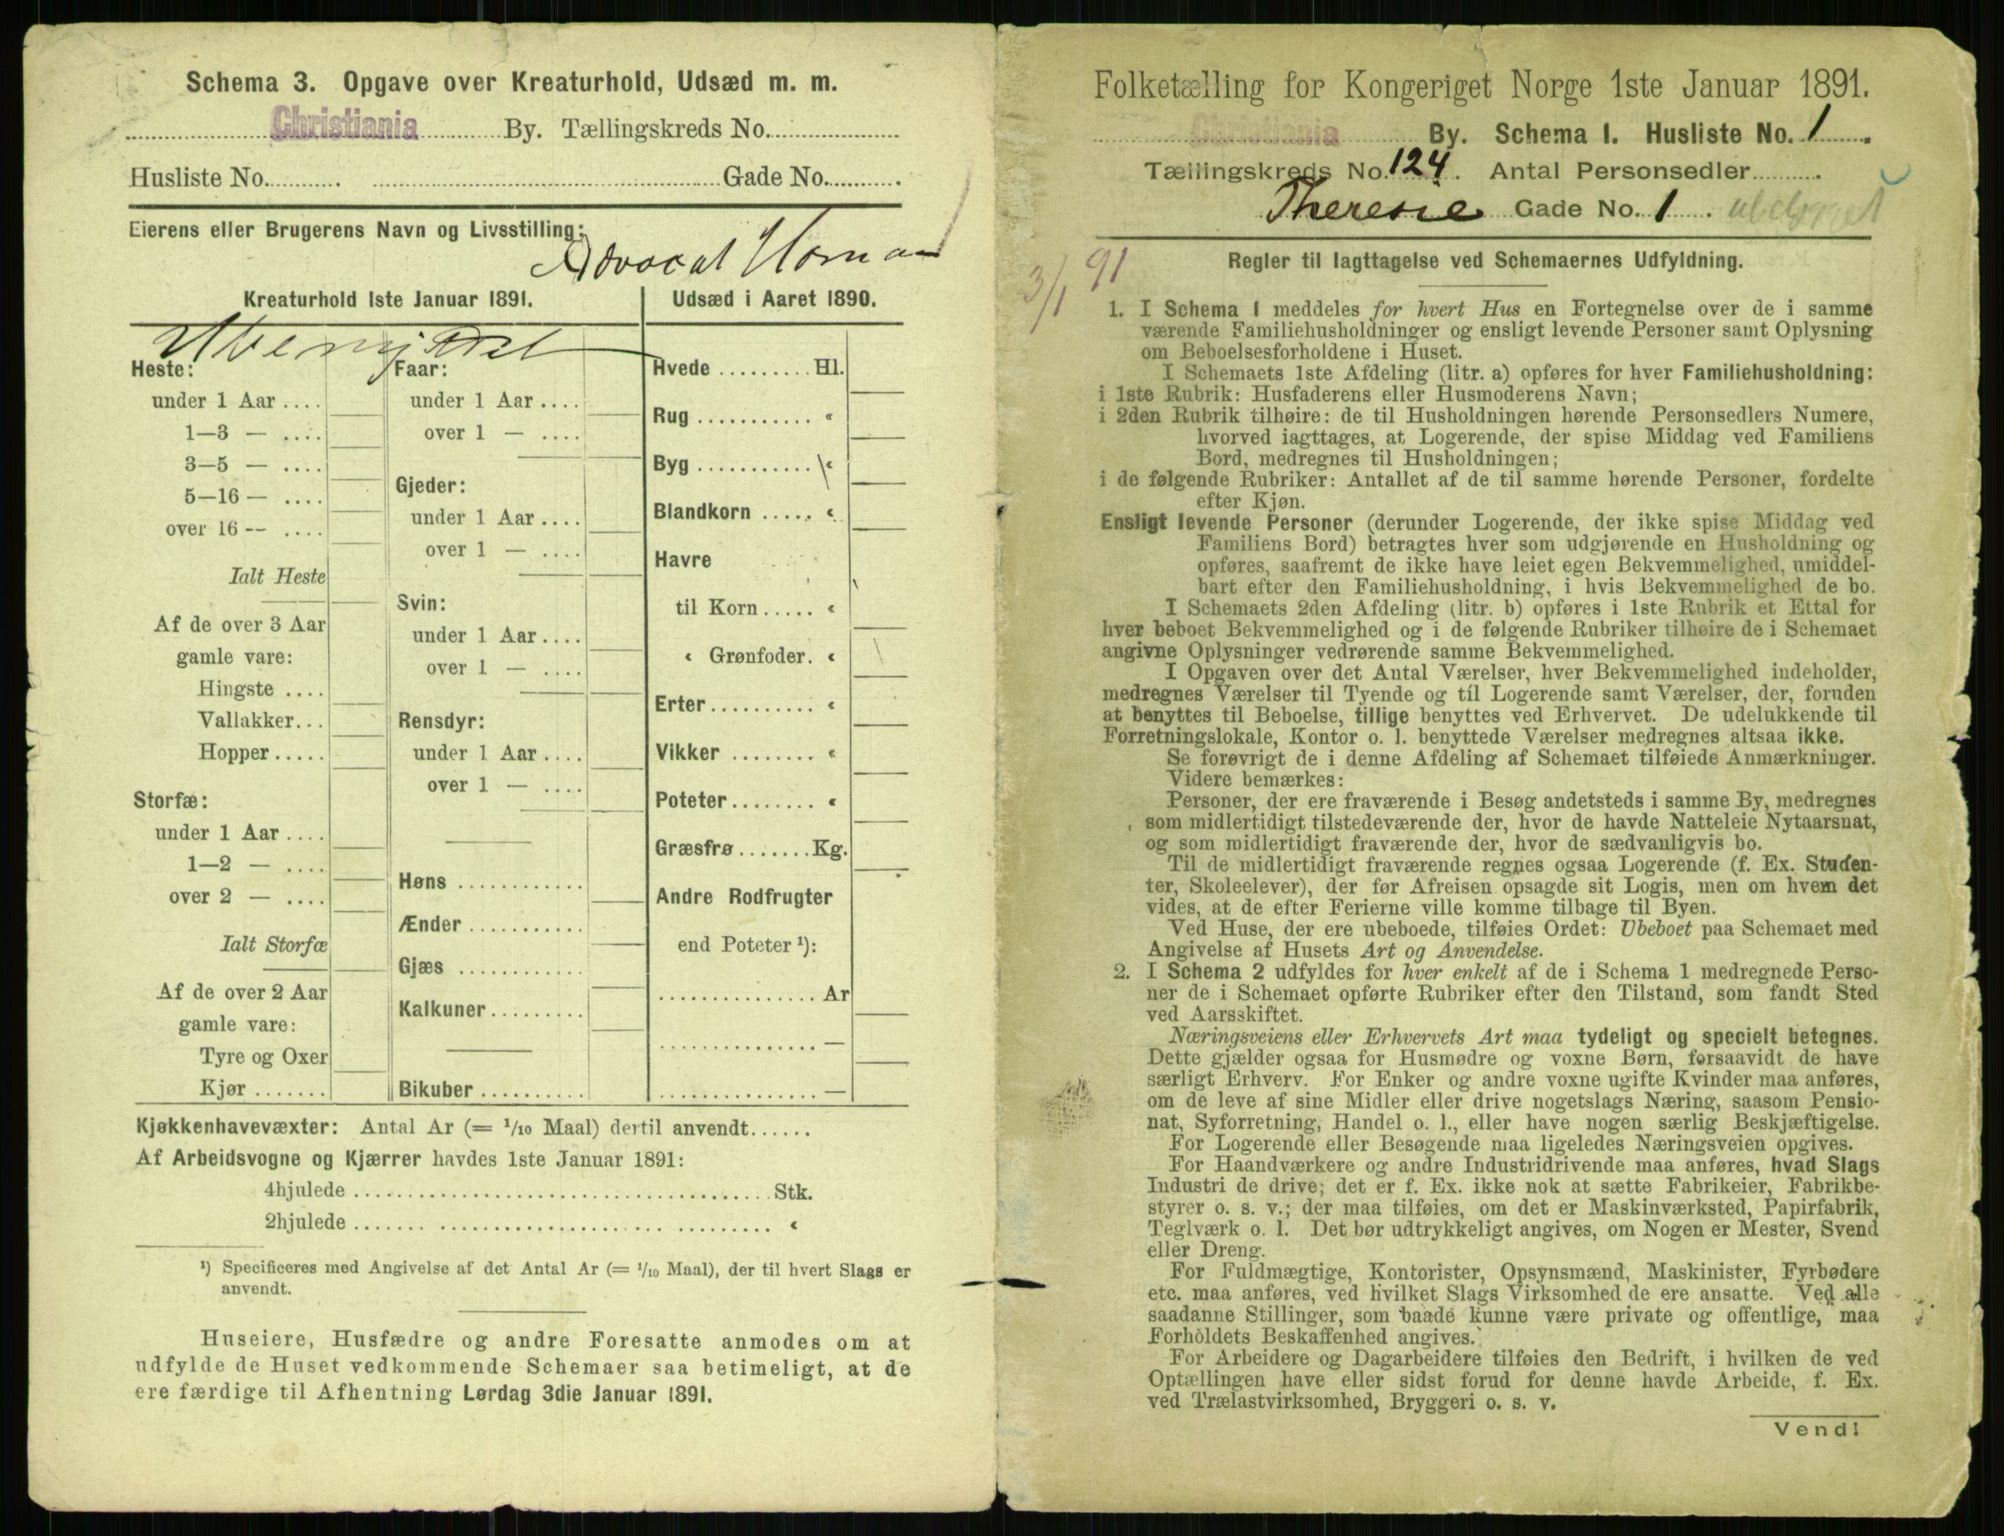 Schema 3. Opgave over Kreaturhold, Udsæd m. m.
Christiania By. Tællingskreds No.
Husliste No. Gade No.
Eierens eller Brugerens Navn og Livsstilling:
Advocat Homan
Kreaturhold 1ste Januar 1891.
Heste:
under 1 Aar
1—3 —
3—5 —
5—16 —
over 16 —
Ialt Heste
Af de over 3 Aar
gamle vare:
Hingste
Vallakker
Hopper
Storfæ:
under 1 Aar
1—2 —
over 2 —
Ialt Storfæ
Af de over 2 Aar
gamle vare:
Tyre og Oxer
Kjør
Faar:
under 1 Aar
over 1 —
Gjeder:
under 1 Aar
over 1 —
Svin:
under 1 Aar
over 1 —
Rensdyr:
under 1 Aar
over 1 —
Høns
Ænder
Gjæs
Kalkuner
Bikuber
Udsæd i Aaret 1890.
Hvede Hl.
Rug «
Byg «
Blandkorn «
Havre
til Korn «
« Grønfoder. «
Erter «
Vikker «
Poteter «
Græsfrø Kg.
Andre Rodfrugter
end Poteter ¹):
Ar
—
—
Kjøkkenhavevæxter: Antal Ar (= 1/10 Maal) dertil anvendt
Af Arbeidsvogne og Kjærrer havdes 1ste Januar 1891:
4hjulede Stk.
2hjulede «
¹) Specificeres med Angivelse af det Antal Ar (= 1/10 Maal), der til hvert Slags er
anvendt.
Huseiere, Husfædre og andre Foresatte anmodes om at
udfylde de Huset vedkommende Schemaer saa betimeligt, at de
ere færdige til Afhentning Lørdag 3die Januar 1891.
Folketælling for Kongeriget Norge 1ste Januar 1891.
Christiania By. Schema 1. Husliste No. 1
Tællingskreds No. 124. Antal Personsedler
Theresie Gade No. 1
3/1 91
Regler til Iagttagelse ved Schemaernes Udfyldning.
1. I Schema 1 meddeles for hvert Hus en Fortegnelse over de i samme
værende Familiehusholdninger og ensligt levende Personer samt Oplysning
om Beboelsesforholdene i Huset.
I Schemaets 1ste Afdeling (litr. a) opføres for hver Familiehusholdning:
i 1ste Rubrik: Husfaderens eller Husmoderens Navn;
i 2den Rubrik tilhøire: de til Husholdningen hørende Personsedlers Numere,
hvorved iagttages, at Logerende, der spise Middag ved Familiens
Bord, medregnes til Husholdningen;
i de følgende Rubriker: Antallet af de til samme hørende Personer, fordelte
efter Kjøn.
Ensligt levende Personer (derunder Logerende, der ikke spise Middag ved
Familiens Bord) betragtes hver som udgjørende en Husholdning og
opføres, saafremt de ikke have leiet egen Bekvemmelighed, umiddel-
bart efter den Familiehusholdning, i hvis Bekvemmelighed de bo.
I Schemaets 2den Afdeling (litr. b) opføres i 1ste Rubrik et Ettal for
hver beboet Bekvemmelighed og i de følgende Rubriker tilhøire de i Schemaet
angivne Oplysninger vedrørende samme Bekvemmelighed.
I Opgaven over det Antal Værelser, hver Bekvemmelighed indeholder,
medregnes Værelser til Tyende og til Logerende samt Værelser, der, foruden
at benyttes til Beboelse, tillige benyttes ved Erhvervet. De udelukkende til
Forretningslokale, Kontor o. l. benyttede Værelser medregnes altsaa ikke.
Se forøvrigt de i denne Afdeling af Schemaet tilføiede Anmærkninger.
Videre bemærkes:
Personer, der ere fraværende i Besøg andetsteds i samme By, medregnes
som midlertidigt tilstedeværende der, hvor de havde Natteleie Nytaarsnat,
og som midlertidigt fraværende der, hvor de sædvanligvis bo.
Til de midlertidigt fraværende regnes ogsaa Logerende (f. Ex. Studen-
ter, Skoleelever), der før Afreisen opsagde sit Logis, men om hvem det
vides, at de efter Ferierne ville komme tilbage til Byen.
Ved Huse, der ere ubeboede, tilføies Ordet: Ubeboet paa Schemaet med
Angivelse af Husets Art og Anvendelse.
2. I Schema 2 udfyldes for hver enkelt af de i Schema 1 medregnede Perso-
ner de i Schemaet opførte Rubriker efter den Tilstand, som fandt Sted
ved Aarsskiftet.
Næringsveiens eller Erhvervets Art maa tydeligt og specielt betegnes.
Dette gjælder ogsaa for Husmødre og voxne Børn, forsaavidt de have
særligt Erhverv. For Enker og andre voxne ugifte Kvinder maa anføres,
om de leve af sine Midler eller drive nogetslags Næring, saasom Pensio-
nat, Syforretning, Handel o. l., eller have nogen særlig Beskjæftigelse.
For Logerende eller Besøgende maa ligeledes Næringsveien opgives.
For Haandværkere og andre Industridrivende maa anføres, hvad Slags
Industri de drive; det er f. Ex. ikke nok at sætte Fabrikeier, Fabrikbe-
styrer o. s. v.; der maa tilføies, om det er Maskinværksted, Papirfabrik,
Teglværk o. l. Det bør udtrykkeligt angives, om Nogen er Mester, Svend
eller Dreng.
For Fuldmægtige, Kontorister, Opsynsmænd, Maskinister, Fyrbødere
etc. maa anføres, ved hvilket Slags Virksomhed de ere ansatte. Ved alle
saadanne Stillinger, som baade kunne være private og offentlige, maa
Forholdets Beskaffenhed angives.
For Arbeidere og Dagarbeidere tilføies den Bedrift, i hvilken de ved
Optællingen have eller sidst forud for denne havde Arbeide, f. Ex.
ved Trælastvirksomhed, Bryggeri o. s. v.
Vend!